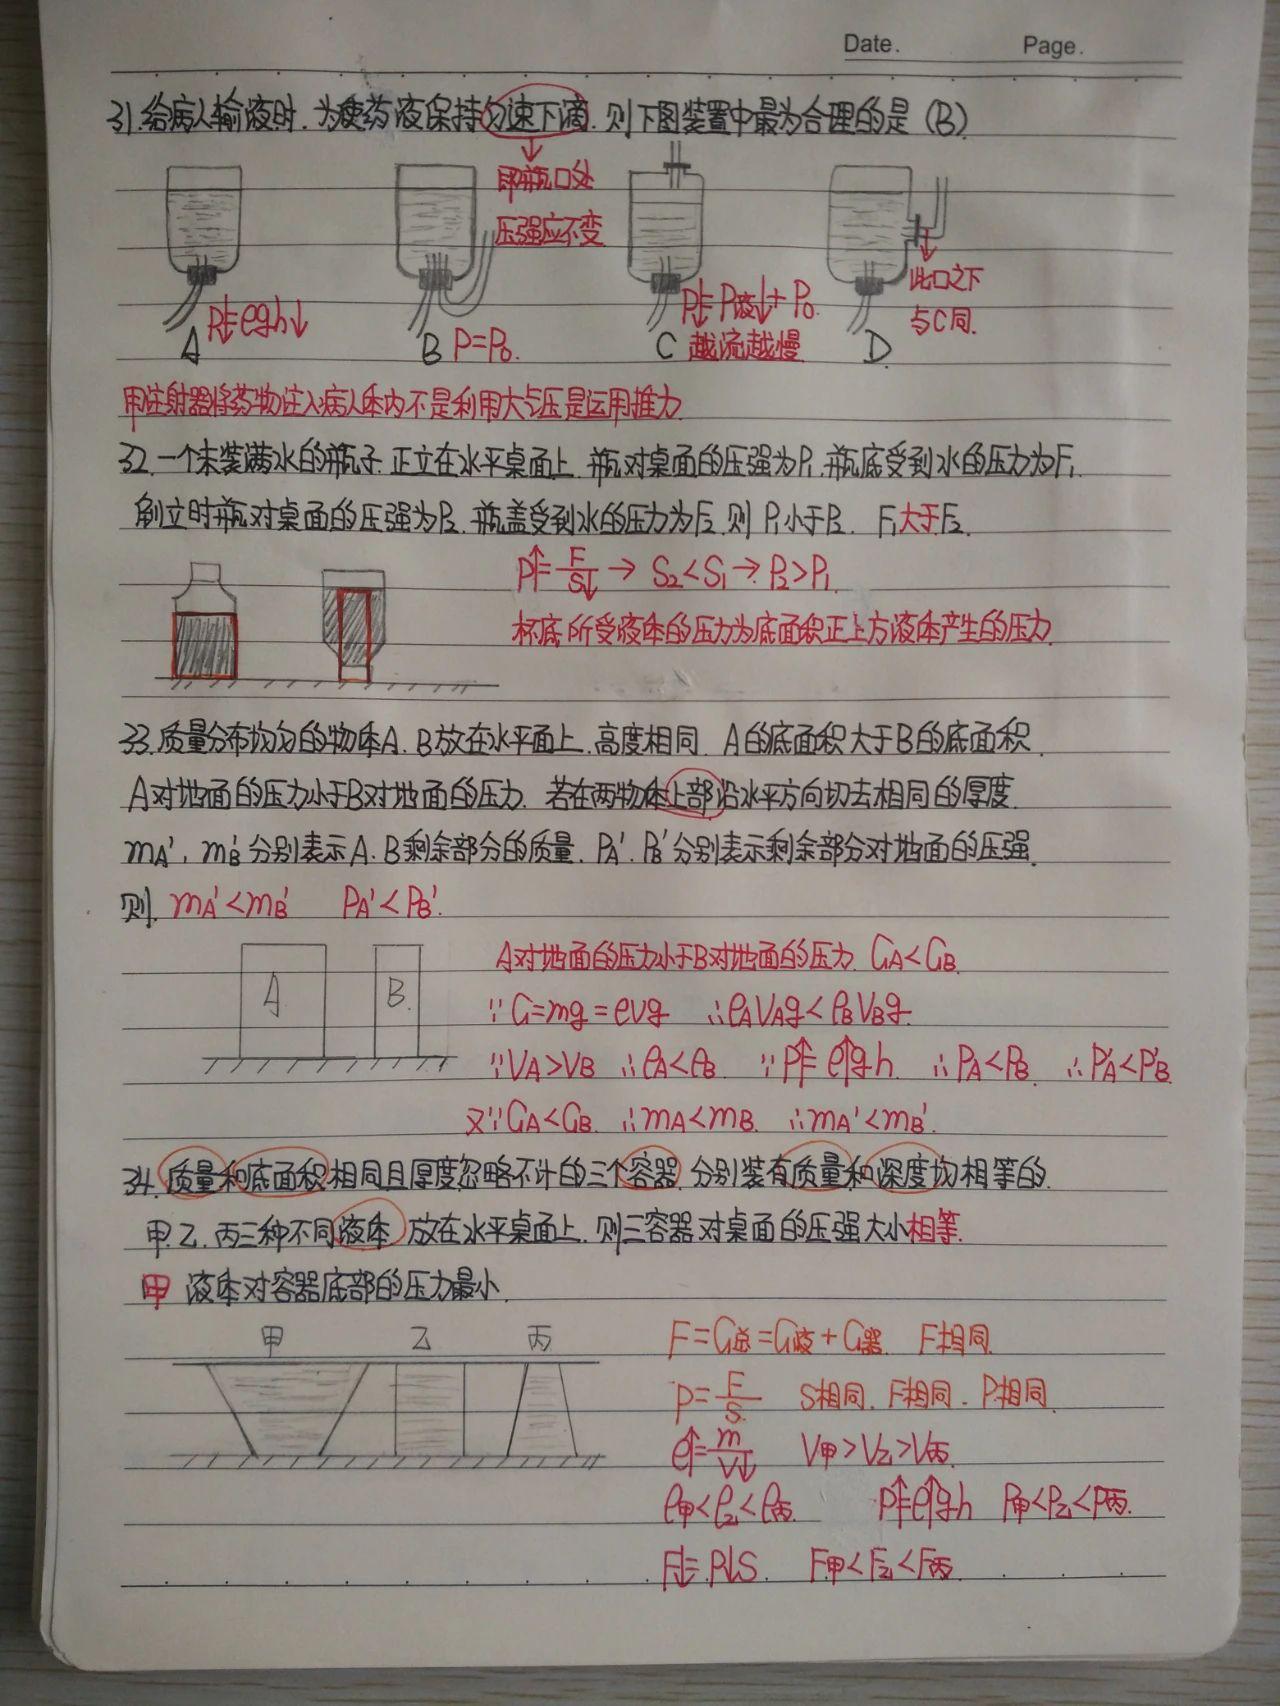 Date.
Page.
31.给病人输液时.为使药液保持匀速下滴.则下图装置中最为合理的是(B)
即瓶口处
压强应不变
此口之下
与C同.
P↓=ρgh↓
P↓=P液↓+P₀
A
B P=P₀.
C 越流越慢
D
用注射器将药物注入病人体内不是利用大气压是运用推力
32.一个未装满水的瓶子.正立在水平桌面上.瓶对桌面的压强为P₁.瓶底受到水的压力为F₁.
倒立时瓶对桌面的压强为P₂.瓶盖受到水的压力为F₂.则P₁小于P₂. F₁大于F₂.
P↑=F/S↓→S₂<S₁→P₂>P₁.
杯底所受液体的压力为底面积正上方液体产生的压力
33.质量分布均匀的物体A.B放在水平面上.高度相同.A的底面积大于B的底面积.
A对地面的压力小于B对地面的压力.若在两物体上部沿水平方向切去相同的厚度.
mA'.mB'分别表示A.B剩余部分的质量.PA'.PB'分别表示剩余部分对地面的压强.
则.mA'<mB' PA'<PB'.
A
B.
A对地面的压力小于B对地面的压力.GA<GB.
∵G=mg=ρvg ∴ρAVAg<ρBVBg.
∵VA>VB ∴ρA<ρB ∵P↑=ρ↑gh. ∴PA<PB. ∴P'A<P'B.
又∵GA<GB. ∴mA<mB. ∴mA'<mB'.
34.质量和底面积相同且厚度忽略不计的三个容器.分别装有质量和深度均相等的.
甲.乙.丙三种不同液体.放在水平桌面上.则三容器对桌面的压强大小相等.
甲 液体对容器底部的压力最小.
甲
乙
丙
F=G总=G液+G器. F相同.
P=F/S. S相同.F相同.P相同.
ρ↑=m/V↓ V甲>V乙>V丙.
ρ甲<ρ乙<ρ丙. P↑=ρ↑gh P甲<P乙<P丙.
F↓=P↓S. F甲<F乙<F丙.